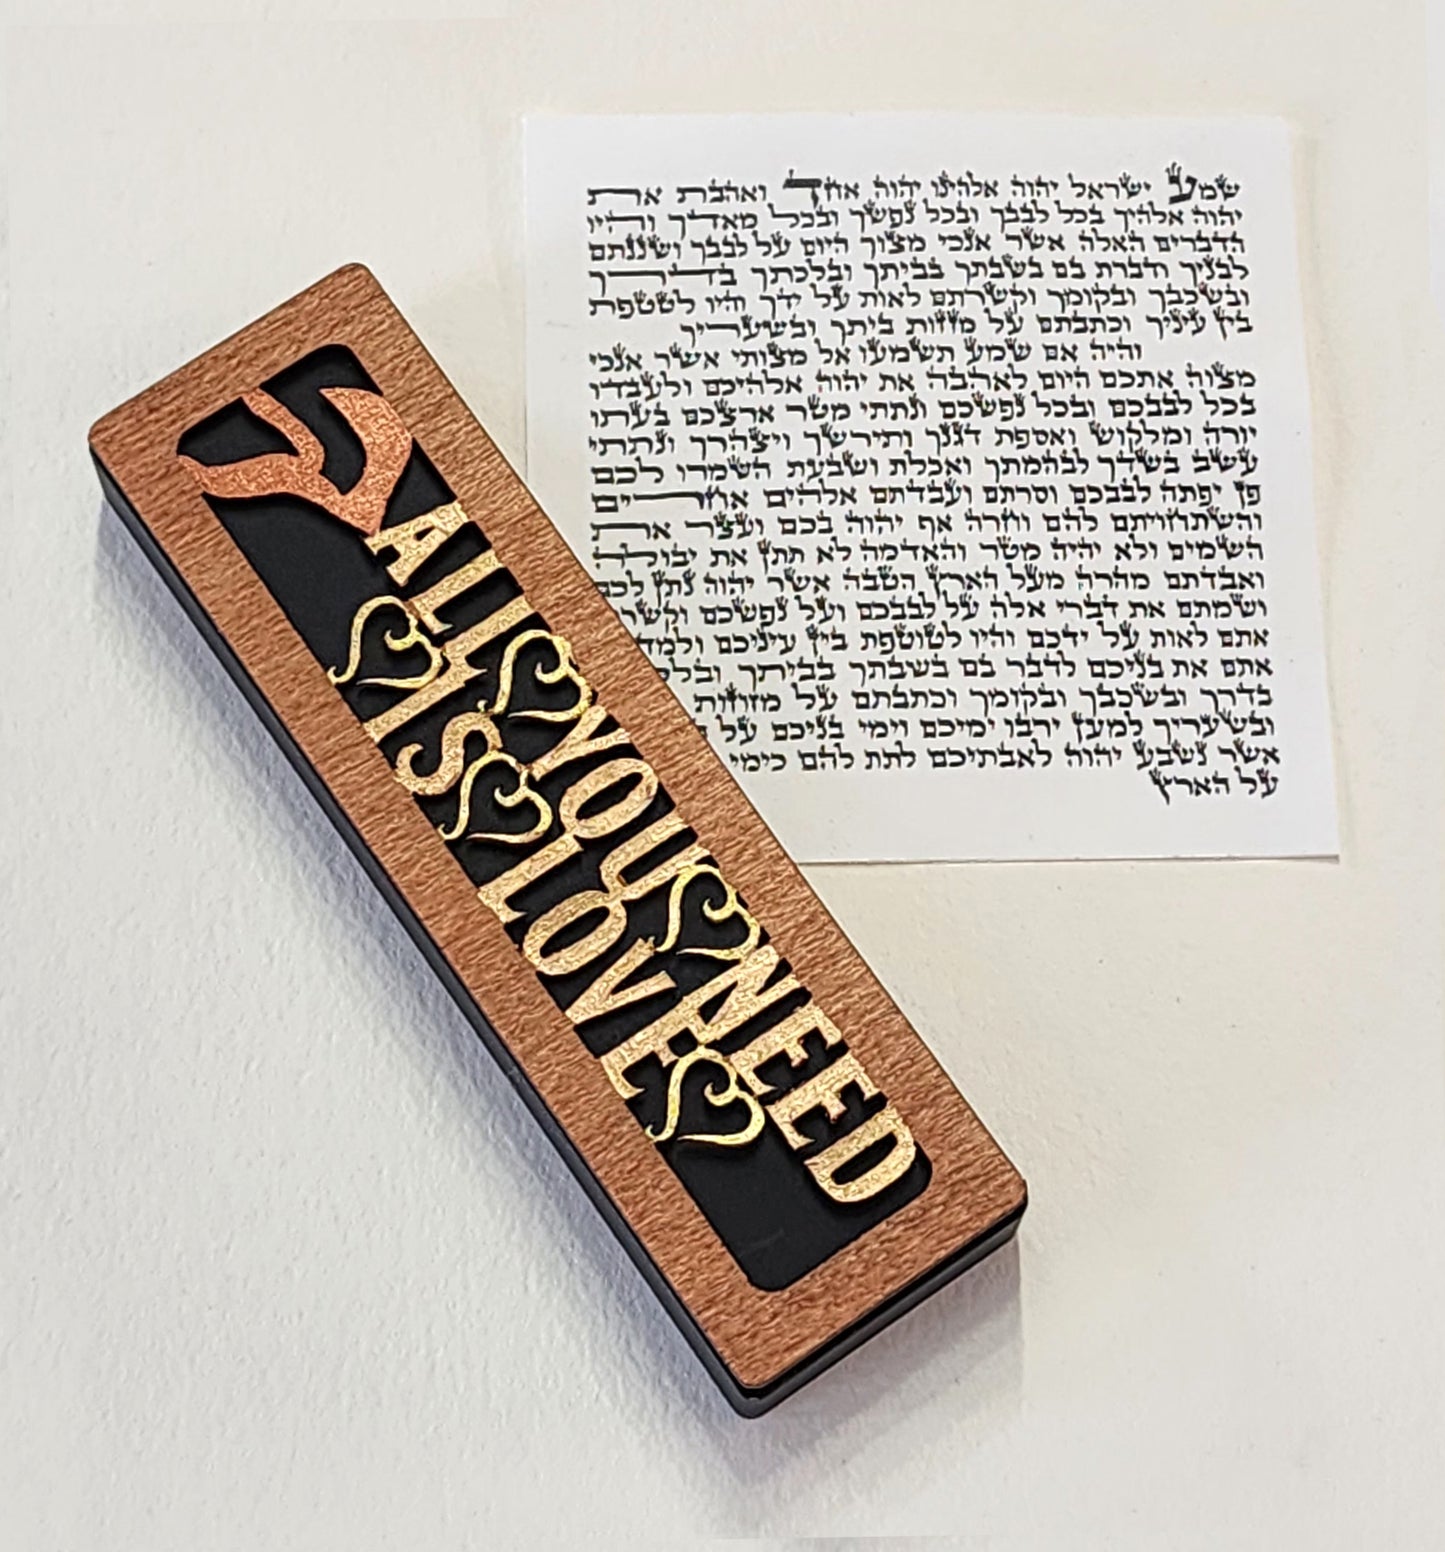 ש
ALL YOU NEED
IS LOVE
שמע ישראל יהוה אלהינו יהוה אחד ואהבת את
יהוה אלהיך בכל לבבך ובכל נפשך ובכל מאדך והיו
הדברים האלה אשר אנכי מצוך היום על לבבך ושננתם
לבניך ודברת בם בשבתך בביתך ובלכתך בדרך
ובשכבך ובקומך וקשרתם לאות על ידך והיו לטטפת
בין עיניך וכתבתם על מזזות ביתך ובשעריך
והיה אם שמע תשמעו אל מצותי אשר אנכי
מצוה אתכם היום לאהבה את יהוה אלהיכם ולעבדו
בכל לבבכם ובכל נפשכם ונתתי מטר ארצכם בעתו
יורה ומלקוש ואספת דגנך ותירשך ויצהרך ונתתי
עשב בשדך לבהמתך ואכלת ושבעת השמרו לכם
פן יפתה לבבכם וסרתם ועבדתם אלהים אחרים
והשתחויתם להם וחרה אף יהוה בכם ועצר את
השמים ולא יהיה מטר והאדמה לא תתן את יבולה
ואבדתם מהרה מעל הארץ הטבה אשר יהוה נתן לכם
ושמתם את דברי אלה על לבבכם ועל נפשכם וקשר
אתם לאות על ידכם והיו לטוטפת בין עיניכם ולמד
אתם את בניכם לדבר בם בשבתך בביתך ובלכ
בדרך ובשכבך ובקומך וכתבתם על מזוזות
ובשעריך למען ירבו ימיכם וימי בניכם על
אשר נשבע יהוה לאבתיכם לתת להם כימי
על הארץ